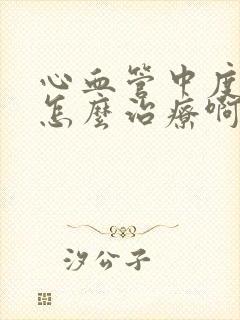 心血管中度
怎麼治療啊
汐公子